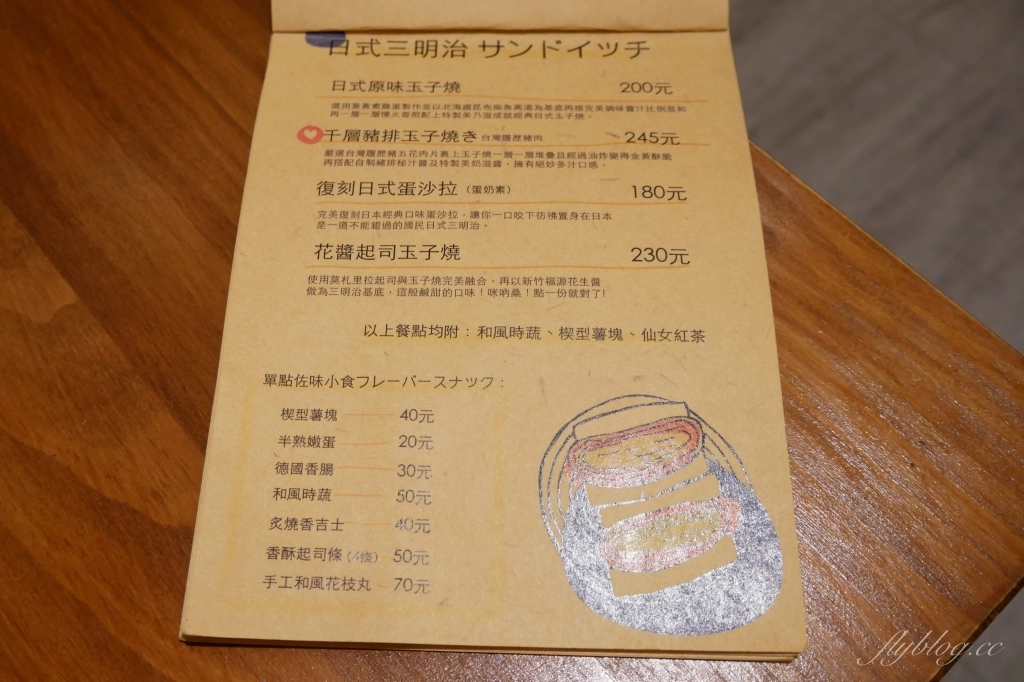 日式三明治 サンドイッチ
日式原味玉子燒 200元
選用葉黃素雞蛋製作並以北海道昆布柴魚高湯為基底再搭完美調味醬汁比例底和
再一層一層慢火香煎配上特製美乃滋成就經典日式玉子燒。
千層豬排玉子燒き 台灣履歷豬肉 245元
嚴選台灣履歷豬五花肉片裹上玉子燒一層一層堆疊且經過油炸變得金黃酥脆
再搭配自制豬排秘汁醬及特製美奶滋醬，擁有絕妙多汁口感。
復刻日式蛋沙拉（蛋奶素） 180元
完美復刻日本經典口味蛋沙拉，讓你一口咬下彷彿置身在日本
是一道不能錯過的國民日式三明治。
花醬起司玉子燒 230元
使用莫札里拉起司與玉子燒完美融合，再以新竹福源花生醬
做為三明治基底，這般鹹甜的口味！咪吶桑！點一份就對了!
以上餐點均附：和風時蔬、楔型薯塊、仙女紅茶
單點佐味小食フレーバースナック：
楔型薯塊 40元
半熟嫩蛋 20元
德國香腸 30元
和風時蔬 50元
炙燒香吉士 40元
香酥起司條（4條） 50元
手工和風花枝丸 70元
flyblog.cc